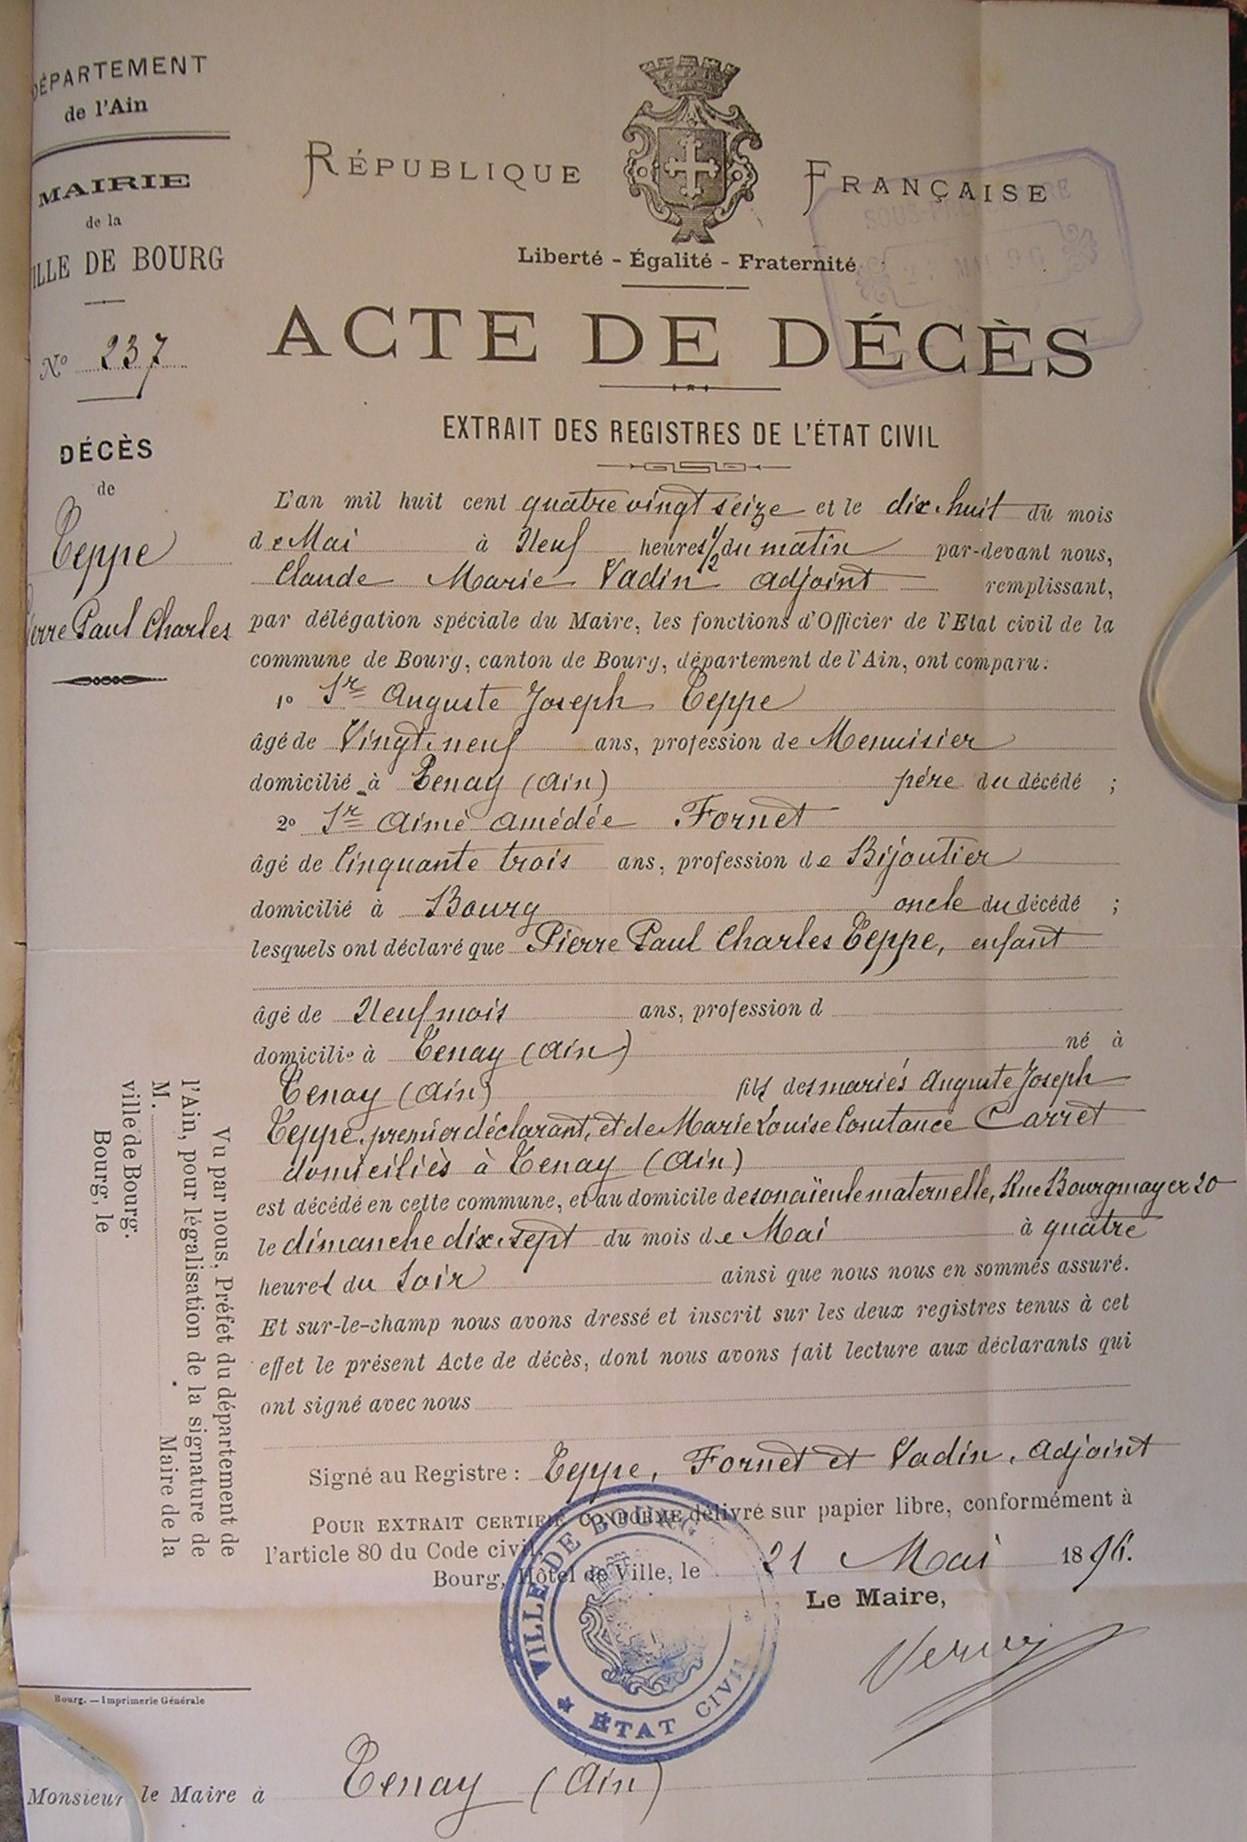 DÉPARTEMENT
de l'Ain
MAIRIE
de la
ILLE DE BOURG
N° 237
DÉCÈS
de
Teppe
ierre Paul Charles
RÉPUBLIQUE FRANÇAISE
SOUS-PRÉFECTURE
Liberté - Égalité - Fraternité
ACTE DE DÉCÈS
EXTRAIT DES REGISTRES DE L'ÉTAT CIVIL
L'an mil huit cent quatre vingt seize et le dix huit du mois
de Mai à Neuf heures 1/2 du matin par-devant nous,
Claude Marie Vadin adjoint remplissant,
par délégation spéciale du Maire, les fonctions d'Officier de l'Etat civil de la
commune de Bourg, canton de Bourg, département de l'Ain, ont comparu:
1° Sr Auguste Joseph Teppe
âgé de Vingt neuf ans, profession de Menuisier
domicilié à Tenay (Ain) père du décédé ;
2° Sr Aimé Amédée Fornet
âgé de Cinquante trois ans, profession de Bijoutier
domicilié à Bourg oncle du décédé ;
lesquels ont déclaré que Pierre Paul Charles Teppe, enfant
âgé de Neuf mois ans, profession d
domicilié à Tenay (Ain) né à
Tenay (Ain) fils des mariés Auguste Joseph
Teppe, premier déclarant, et de Marie Louise Constance Carret
domiciliés à Tenay (Ain)
est décédé en cette commune, et au domicile de son aïeule maternelle, Rue Bourgmayer 20
le dimanche dix sept du mois de Mai à quatre
heures du Soir ainsi que nous nous en sommes assuré.
Et sur-le-champ nous avons dressé et inscrit sur les deux registres tenus à cet
effet le présent Acte de décès, dont nous avons fait lecture aux déclarants qui
ont signé avec nous
Signé au Registre : Teppe, Fornet et Vadin, adjoint
POUR EXTRAIT CERTIFIÉ CONFORME délivré sur papier libre, conformément à
l'article 80 du Code civil.
Bourg, Hôtel de Ville, le 21 Mai 1896.
Le Maire,
VILLE DE BOURG
ÉTAT CIVIL
Vu par nous, Préfet du département de
l'Ain, pour légalisation de la signature de
M. Maire de la
ville de Bourg.
Bourg, le
Bourg. — Imprimerie Générale
Monsieur le Maire à Tenay (Ain)